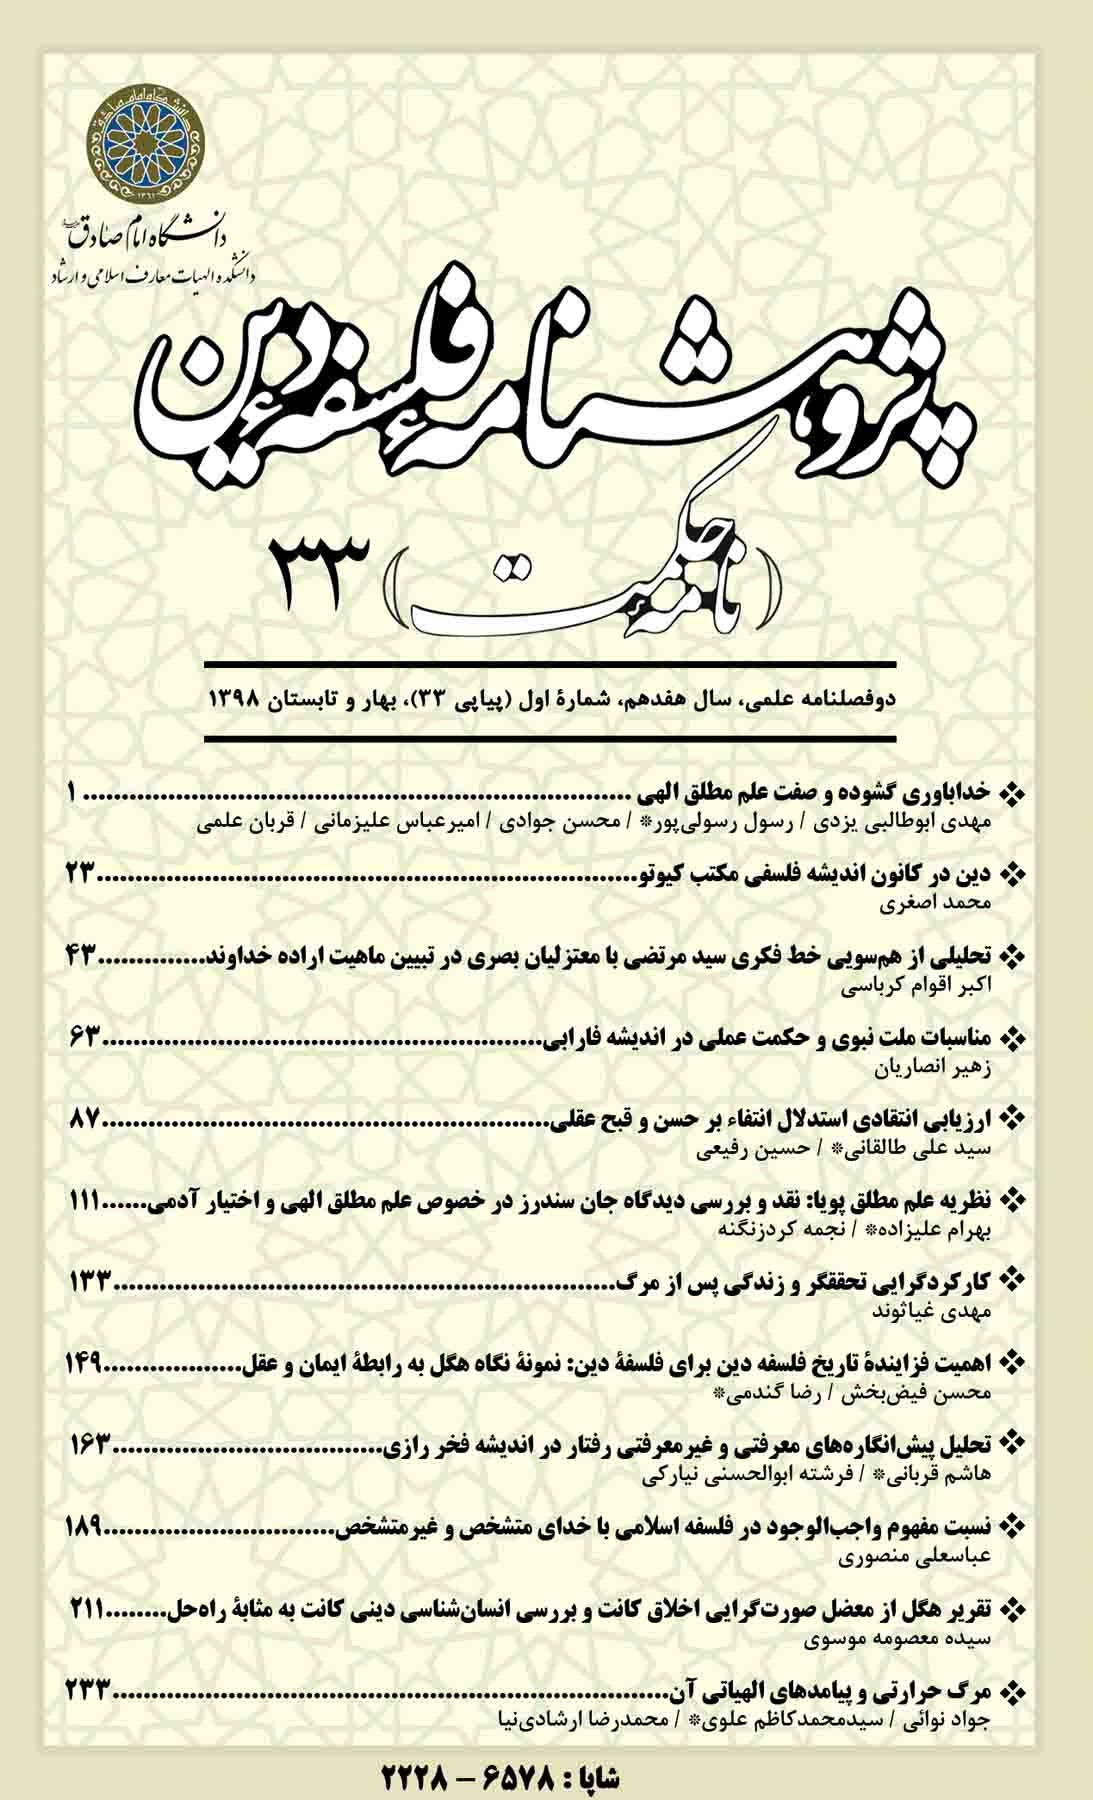 دانشگاه امام صادق
۱۳۶۱
دانشگاه امام صادق علیه‌السلام
دانشکده الهیات معارف اسلامی و ارشاد
پژوهشنامهٔ فلسفهٔ دین
(نامهٔ حکمت) ۳۳
دوفصلنامه علمی، سال هفدهم، شمارهٔ اول (پیاپی ۳۳)، بهار و تابستان ۱۳۹۸
❖ خداباوری گشوده و صفت علم مطلق الهی ........ ۱
مهدی ابوطالبی یزدی / رسول رسولی‌پور* / محسن جوادی / امیرعباس علیزمانی / قربان علمی
❖ دین در کانون اندیشه فلسفی مکتب کیوتو........۲۳
محمد اصغری
❖ تحلیلی از هم‌سویی خط فکری سید مرتضی با معتزلیان بصری در تبیین ماهیت اراده خداوند........۴۳
اکبر اقوام کرباسی
❖ مناسبات ملت نبوی و حکمت عملی در اندیشه فارابی........۶۳
زهیر انصاریان
❖ ارزیابی انتقادی استدلال انتفاء بر حسن و قبح عقلی........۸۷
سید علی طالقانی* / حسین رفیعی
❖ نظریه علم مطلق پویا: نقد و بررسی دیدگاه جان سندرز در خصوص علم مطلق الهی و اختیار آدمی......۱۱۱
بهرام علیزاده* / نجمه کردزنگنه
❖ کارکردگرایی تحققگر و زندگی پس از مرگ........۱۳۳
مهدی غیاثوند
❖ اهمیت فزایندهٔ تاریخ فلسفه دین برای فلسفهٔ دین: نمونهٔ نگاه هگل به رابطهٔ ایمان و عقل........۱۴۹
محسن فیض‌بخش / رضا گندمی*
❖ تحلیل پیش‌انگاره‌های معرفتی و غیرمعرفتی رفتار در اندیشه فخر رازی........۱۶۳
هاشم قربانی* / فرشته ابوالحسنی نیارکی
❖ نسبت مفهوم واجب‌الوجود در فلسفه اسلامی با خدای متشخص و غیرمتشخص........۱۸۹
عباسعلی منصوری
❖ تقریر هگل از معضل صورت‌گرایی اخلاق کانت و بررسی انسان‌شناسی دینی کانت به مثابهٔ راه‌حل........۲۱۱
سیده معصومه موسوی
❖ مرگ حرارتی و پیامدهای الهیاتی آن........۲۳۳
جواد نوائی / سیدمحمدکاظم علوی* / محمدرضا ارشادی‌نیا
شاپا : ۶۵۷۸ – ۲۲۲۸